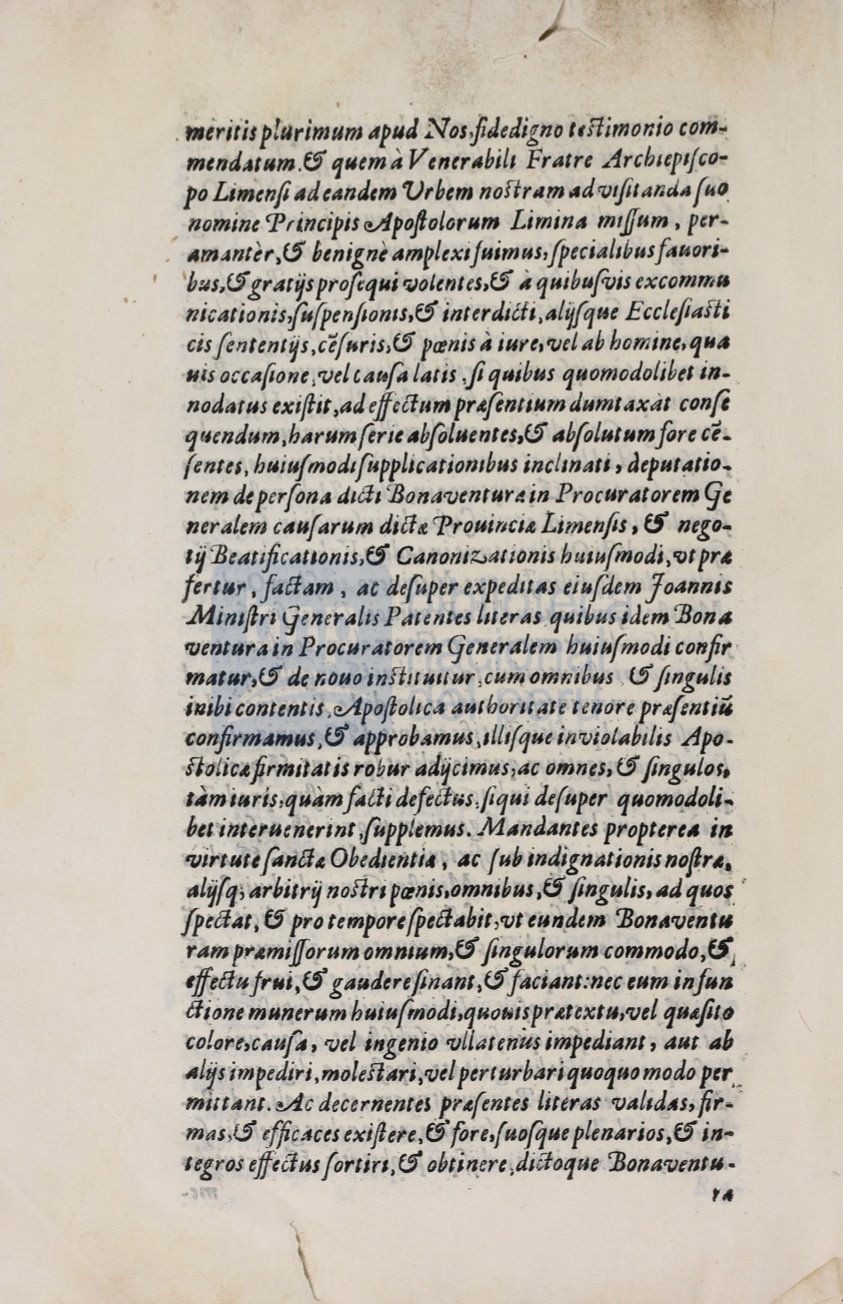 meritis plurimum apud Nos, fidedigno testimonio com-
mendatum. & quem à Venerabili Fratre Archiepisco-
po Limensi ad eandem Urbem nostram ad visitanda suo
nomine Principis Apostolorum Limina missum, per-
amantèr, & benignè amplexi fuimus, specialibus fauori-
bus, & gratijs prosequi volentes, & à quibusvis excommu
nicationis, suspensionis, & interdicti, alijsque Ecclesiasti
cis sententijs, cẽsuris, & pœnis à iure, vel ab homine, qua
uis occasione, vel causa latis, si quibus quomodolibet in-
nodatus existit, ad effectum præsentium dumtaxàt conse
quendum, harum serie absoluentes, & absolutum fore cẽ-
sentes, huiusmodi supplicationibus inclinati, deputatio-
nem de persona dicti Bonaventuræ in Procuratorem Ge
neralem causarum dictæ Prouinciæ Limensis, & nego-
tij Beatificationis, & Canonizationis huiusmodi, vt præ
fertur, factam, ac desuper expeditas eiusdem Joannis
Ministri Generalis Patentes literas quibus idem Bona
ventura in Procuratorem Generalem huiusmodi confir
matur, & de nouo instituitur, cum omnibus & singulis
inibi contentis, Apostolica authoritate tenore præsentiũ
confirmamus, & approbamus, illisque inviolabilis Apo-
stolicæ firmitatis robur adijcimus, ac omnes, & singulos,
tàm iuris, quàm facti defectus, siqui desuper quomodoli-
bet interuenerint, supplemus. Mandantes propterea in
virtute sanctæ Obedientiæ, ac sub indignationis nostræ,
alijsq; arbitrij nostri pœnis, omnibus, & singulis, ad quos
spectat, & pro tempore spectabit, vt eundem Bonaventu
ram præmissorum omnium, & singulorum commodo, &
effectu frui, & gaudere sinant, & faciant: nec eum in fun
ctione munerum huiusmodi, quouis prætextu, vel quæsito
colore, causa, vel ingenio vllatenùs impediant, aut ab
alijs impediri, molestari, vel perturbari quoquo modo per
mittant. Ac decernentes præsentes literas validas, fir-
mas, & efficaces existere, & fore, suosque plenarios, & in-
tegros effectus sortiri, & obtinere, dictoque Bonaventu-
ræ